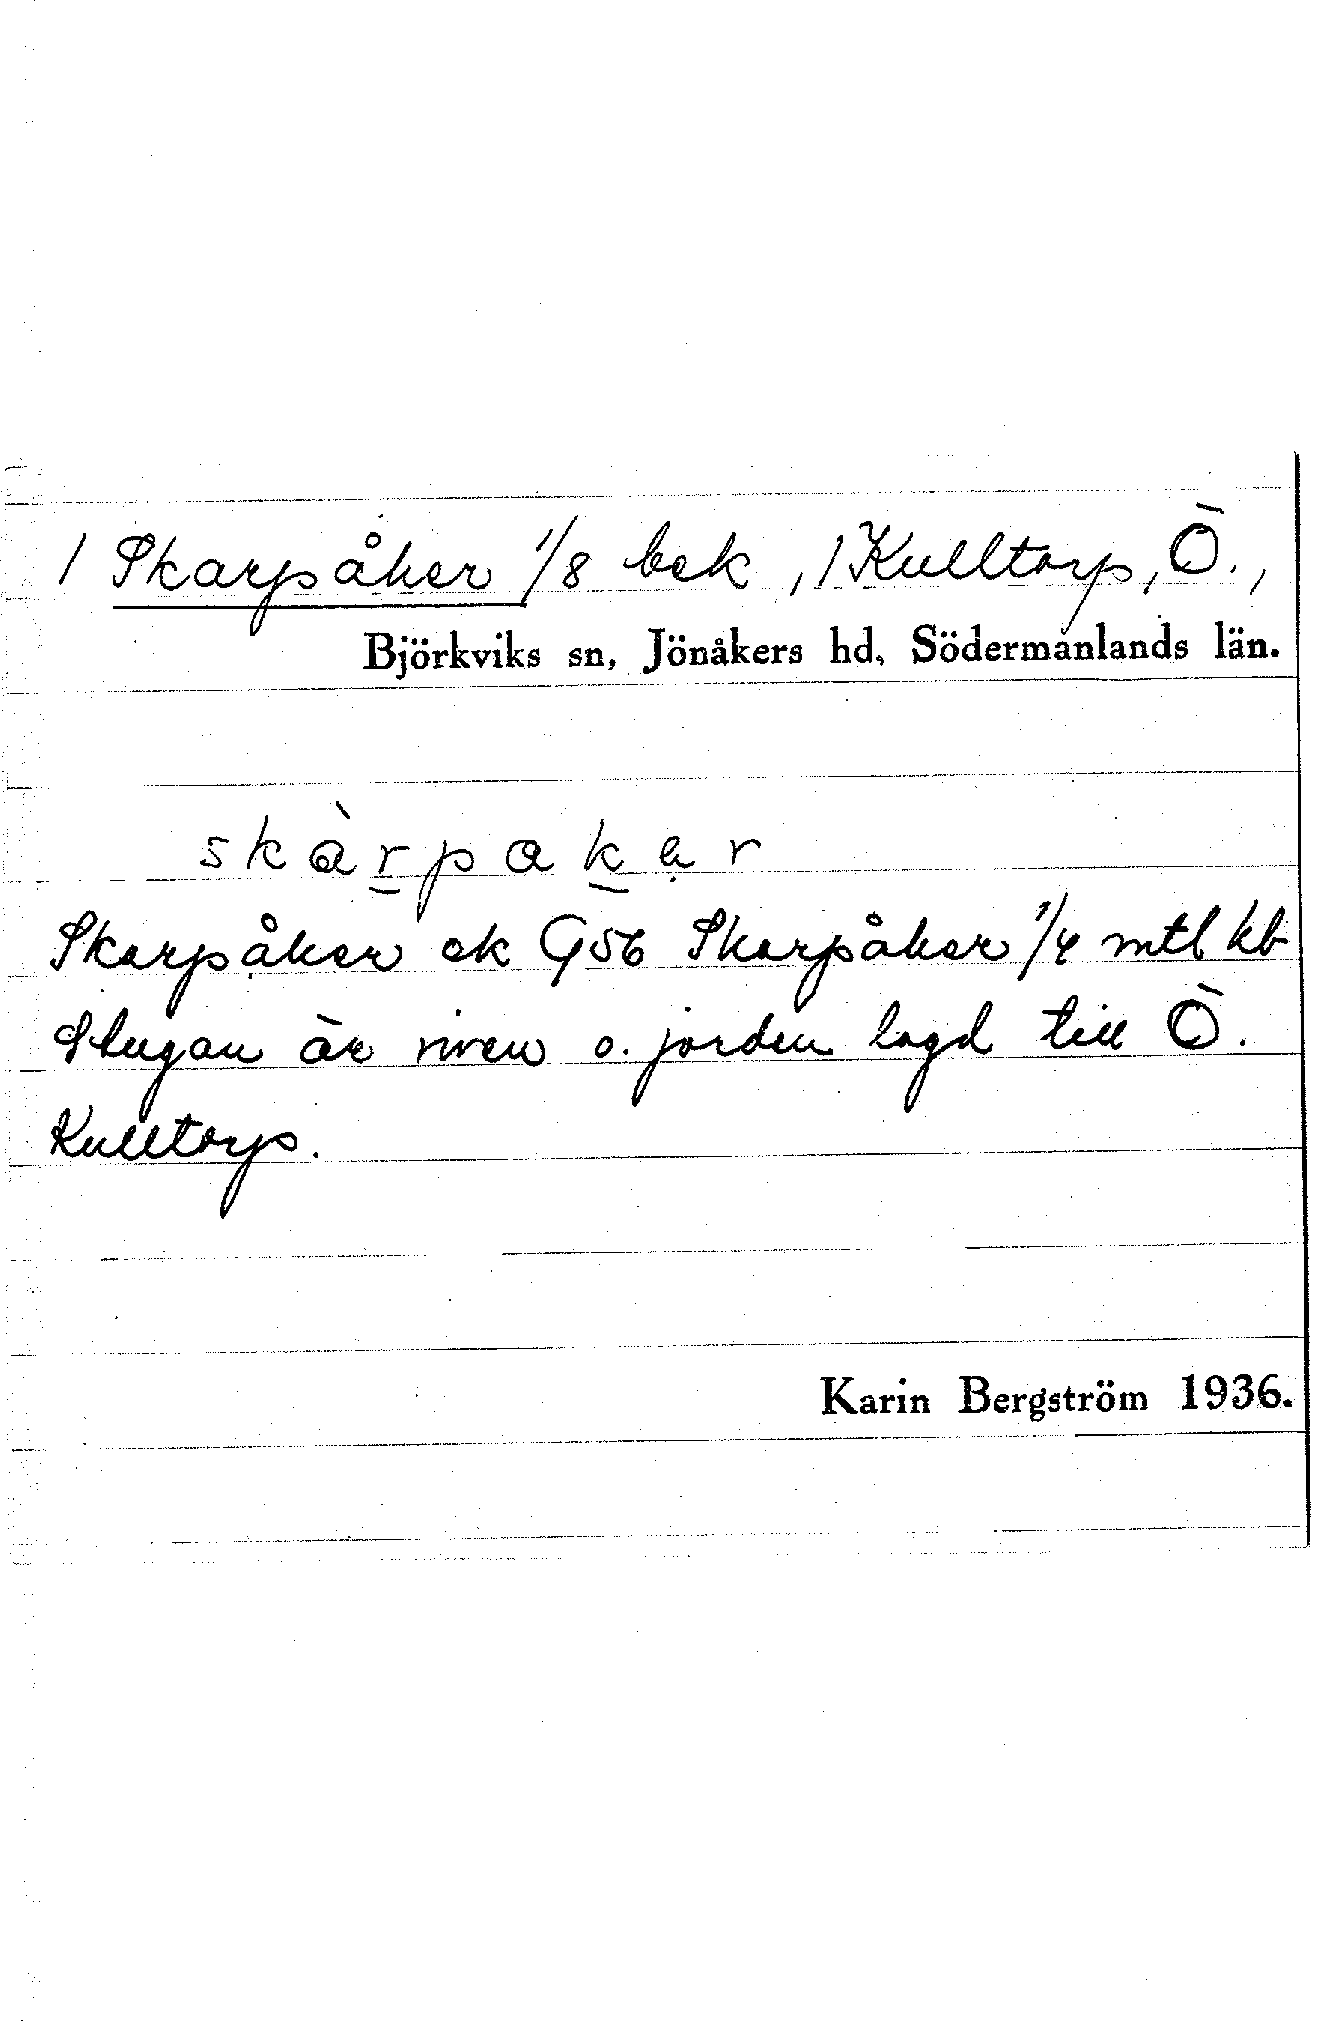 / Skarpåker 1/8 bek, / Kulltorp, Ö.,
Björkviks sn, Jönåkers hd, Södermanlands län.
skàrpakar
Skarpåker ek G56 Skarpåker 1/4 mtl kb
Stugan är riven o. jorden lagd till Ö.
Kulltorp.
Karin Bergström 1936.